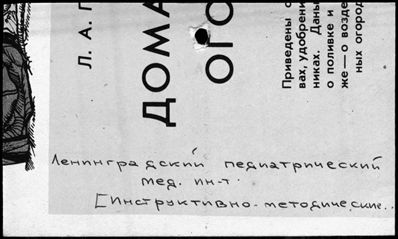 Л. А. Г
ДОМА
ОГО
Приведены с
вах, удобрени
никах. Даны
о поливке и
же — о возде
ных огород
Ленинградский педиатрический
мед. ин-т.
[Инструктивно-методические..